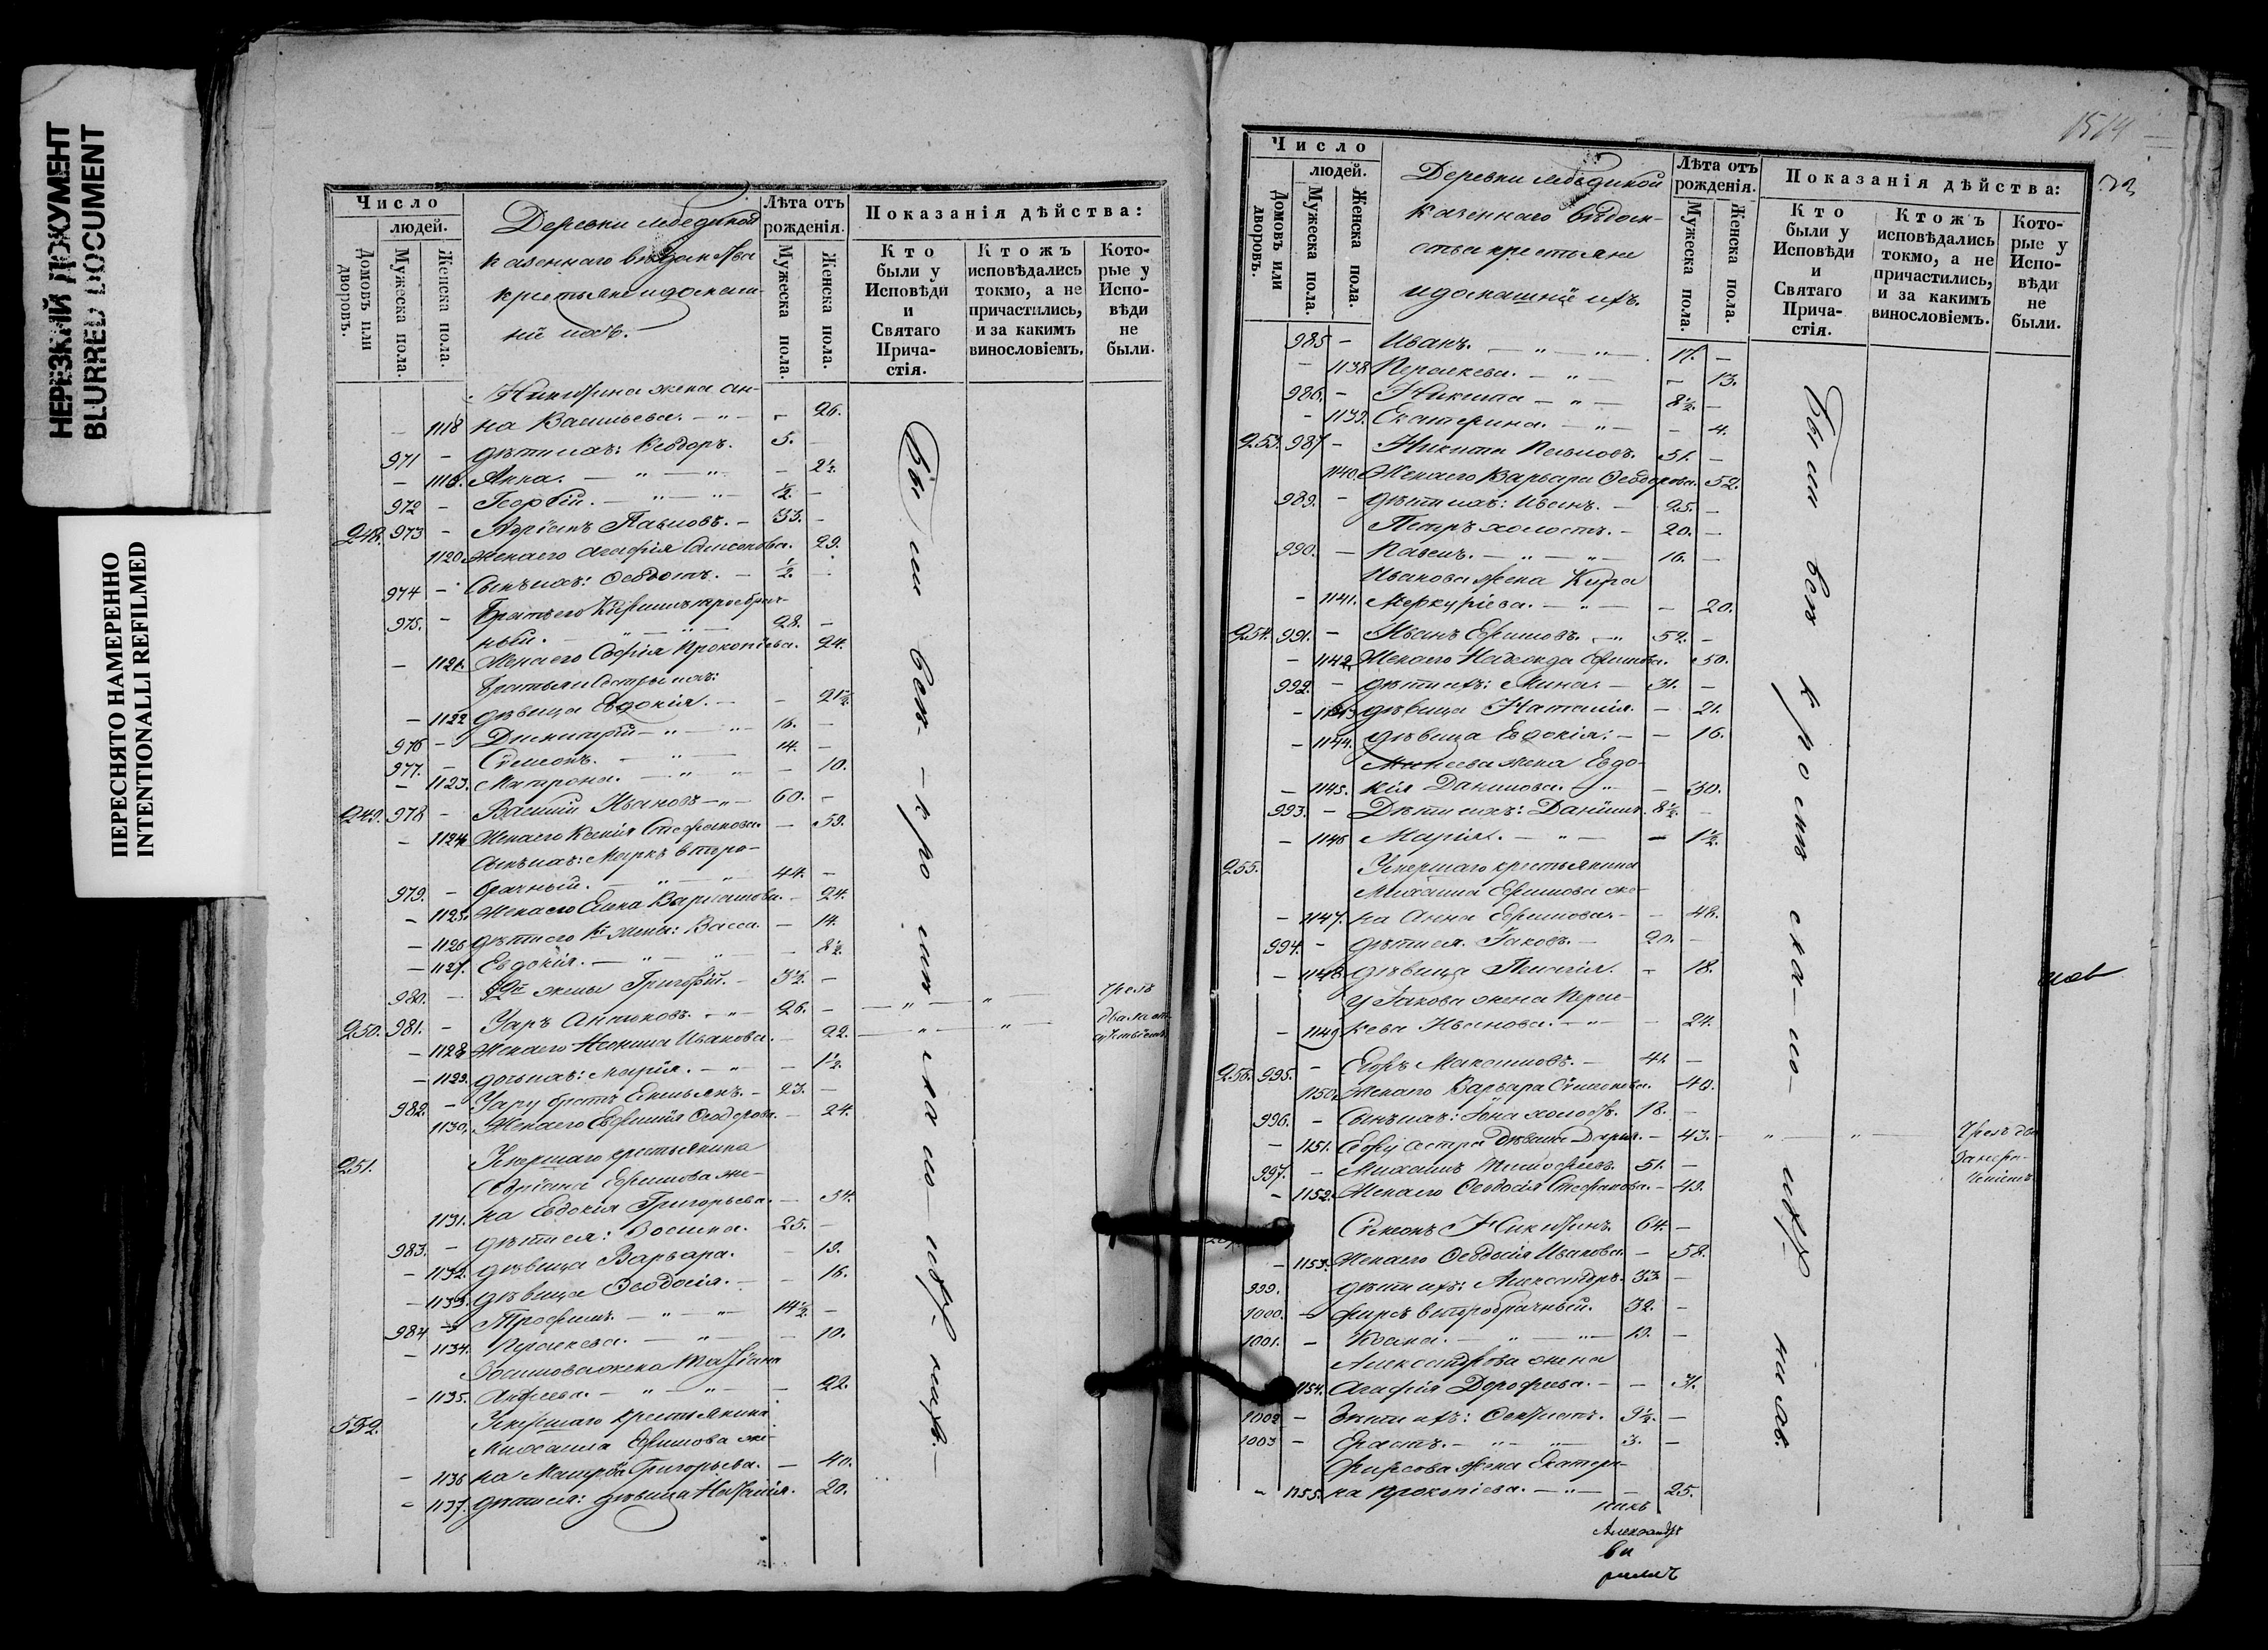 НЕРЕЗКИЙ ДОКУМЕНТ
BLURRED DOCUMENT
ПЕРЕСНЯТО НАМЕРЕННО
INTENTIONALLI REFILMED
Число
людей.
Домовъ или дворовъ.
Мужеска пола.
Женска пола.
Деревни
казеннаго вѣдомства
крестьяне и домаш-
ніе ихъ.
Лѣта отъ рожденія.
Мужеска пола.
Женска пола.
Показанія дѣйства:
Кто были у Исповѣди и Святаго Причастія.
Ктожъ исповѣдались токмо, а не причастились, и за какимъ винословіемъ.
Которые у Исповѣди не были.
Никитина жена Ан-
– 1118 на Васильева. – „ – – 26.
971 – дѣти ихъ: Ѳеодоръ. 5. –
– 1119. Анна. – „ – „ – – 2½.
972 – Георгій. – „ – „ – ½. –
248. 973 – Адріанъ Павловъ. – 33. –
1120. Жена его Агафія Самсонова. 29.
974 – Сынъ ихъ: Ѳеодотъ. – ½. –
975. – Братъ его Кириллъ второбрач-
ный. – „ – „ – 28. –
– 1121. Жена его Софія Прокопіева. 24.
Братья и Сестры ихъ:
– 1122 дѣвица Евдокія. – – 21½.
976 – Димитрій – „ – „ – 16. –
977. – Сѵмеонъ. – „ – 14. –
– 1123. Матрона. – „ – „ – – 10.
249. 978 – Василій Ивановъ – „ – 60. –
– 1124. Жена его Ксенія Стефанова. – 59.
Сынъ ихъ: Маркъ второ-
979. – брачный. – „ – „ – 44. –
– 1125. Жена его Анна Варламова. – 24.
– 1126 дѣти его 1й жены: Васса. – 14.
– 1127. Евдокія. – „ – „ – – 8½.
980. – 2й жены Григорій. – 3½. –
250. 981. – Уаръ – „ – 26. – – „ – „ –
– 1128 Жена его Неонила Иванова. – 22. – „ – „ –
– 1129. дочь ихъ: Марія. – „ – – 1½.
982. – Уару братъ Емельянъ. – 23. –
1130. Жена его Евфимія Ѳеодорова. – 24.
251. Умершаго крестьянина
Адріана Ефимова же-
1131. на Евдокія Григорьева. – 34.
983. – дѣти ея: Зосима. 25. –
– 1132. дѣвица Варвара. – 19.
– 1133. дѣвица Ѳеодосія. – – 16.
984 – Трофимъ. – „ – „ – 14½. –
– 1134. Параскева. – „ – – 10.
Зосимова жена Татіана
– 1135. – „ – „ – – 22.
552. Умершаго крестьянина
Михаила Ефимова же-
– 1136 на Матрона Григорьева. – 40.
– 1137. дѣти ея: дѣвица Наталія. 20.
Были всѣ – кромѣ малолѣтнихъ. –
1514
Число
людей.
Домовъ или дворовъ.
Мужеска пола.
Женска пола.
Деревни
казеннаго вѣдом-
ства крестьяне
и домашніе ихъ.
Лѣта отъ рожденія.
Мужеска пола.
Женска пола.
Показанія дѣйства:
Кто были у Исповѣди и Святаго Причастія.
Ктожъ исповѣдались токмо, а не причастились, и за какимъ винословіемъ.
Которые у Исповѣди не были.
985 – Иванъ. – „ – „ – 17. –
– 1138 Параскева. – „ – – 13.
986. – Никита – „ – 8½. –
– 1139. Екатерина. – „ – – 4.
253. 987 – Никита Павловъ. 51. –
1140. Жена его Варвара Ѳеодорова. 52.
989. – дѣти ихъ: Иванъ. – 25. –
Петръ холостъ. – 20. –
990. – Павелъ. – „ – „ – 16. –
Иванова жена Кира
– 1141. Меркуріева. – „ – – 20.
254. 991. – Иванъ Ефимовъ. – „ 52. –
– 1142. Жена его Надежда Ефимова. 50.
992. – дѣти ихъ: Мина. – 31. –
– 1143 дѣвица Наталія. – 21.
– 1144. дѣвица Евдокія: – – 16.
Минеева жена Евдо-
– 1145. кія Данилова. – „ – – 30.
993. – Дѣти ихъ: Даніилъ. 8½. –
– 1146 Марія. – „ – – 1½.
255. Умершаго крестьянина
Михаила Ефимова же-
– 1147. на Анна Ефимова – – 48.
994. – дѣти ея. Іаковъ. – 20. –
– 1148. дѣвица Пелагія. – 18.
У Іакова жена Парас-
– 1149 кева Иванова. – „ – – 24.
256. 995. – Егоръ Максимовъ. – 41. –
1150. Жена его Варвара Сѵмеонова. 40.
996. – Сынъ ихъ: Іона холостъ. 18. –
– 1151. Егору сестра дѣвица Дарія. – 43. – „ – „ –
997. – Михаилъ Тимофеевъ. 51. –
– 1152. Жена его Ѳеодосія Стефанова. – 49.
Сѵмеонъ Никитинъ. 64. –
– 1153. Жена его Ѳеодосія Иванова. – 58.
999. дѣти ихъ: Александръ. 33 –
1000. – Фирсъ второбрачный. 32. –
1001. – Косма. – „ – „ – 19. –
Александрова жена
1154. Агафія Дорофеева. – – 31.
1002 – Дѣти ихъ: 9½. –
1003 – Ерастъ. – „ – „ – 3. –
Фирсова жена Екатери-
– 1155. на Прокопіева. – „ – – 25.
Были всѣ кромѣ мало- лѣт нихъ.